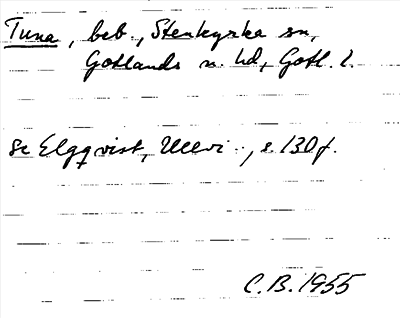 Tuna, beb., Stenkyrka sn,
Gotlands n. hd, Gotl. l.
Se Elgqvist, Ullvi .., s. 130 f.
C.B. 1955